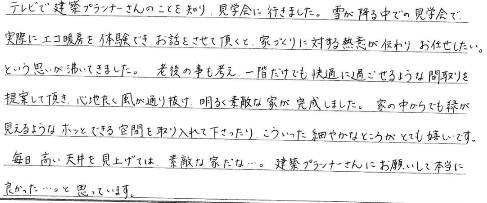 テレビで建築プランナーさんのことを知り、見学会に行きました。雪が降る中での見学会で、
実際にエコ暖房を体験でき、お話をさせて頂くと、家づくりに対する熱意が伝わり、お任せしたい。
という思いが沸いてきました。 老後の事も考え、一階だけでも快適に過ごせるような間取りを
提案して頂き、心地よく風が通り抜け、明るく素敵な家が完成しました。 家の中からでも緑が
見えるようなホッとできる空間を取り入れて下さったり、こういった細やかなところがとても嬉しいです。
毎日高い天井を見上げては、素敵な家だな…。建築プランナーさんにお願いして本当に
良かった…。と思っています。